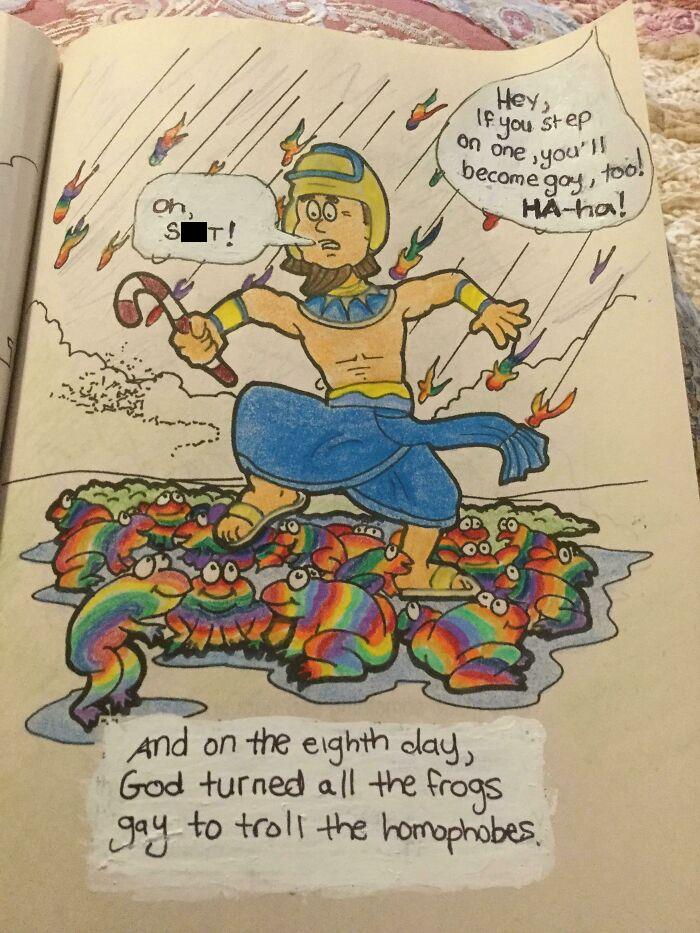 Hey,
If you step
on one, you'll
become gay, too!
HA-ha!
Oh,
S T!
And on the eighth day,
God turned all the frogs
gay to troll the homophobes.